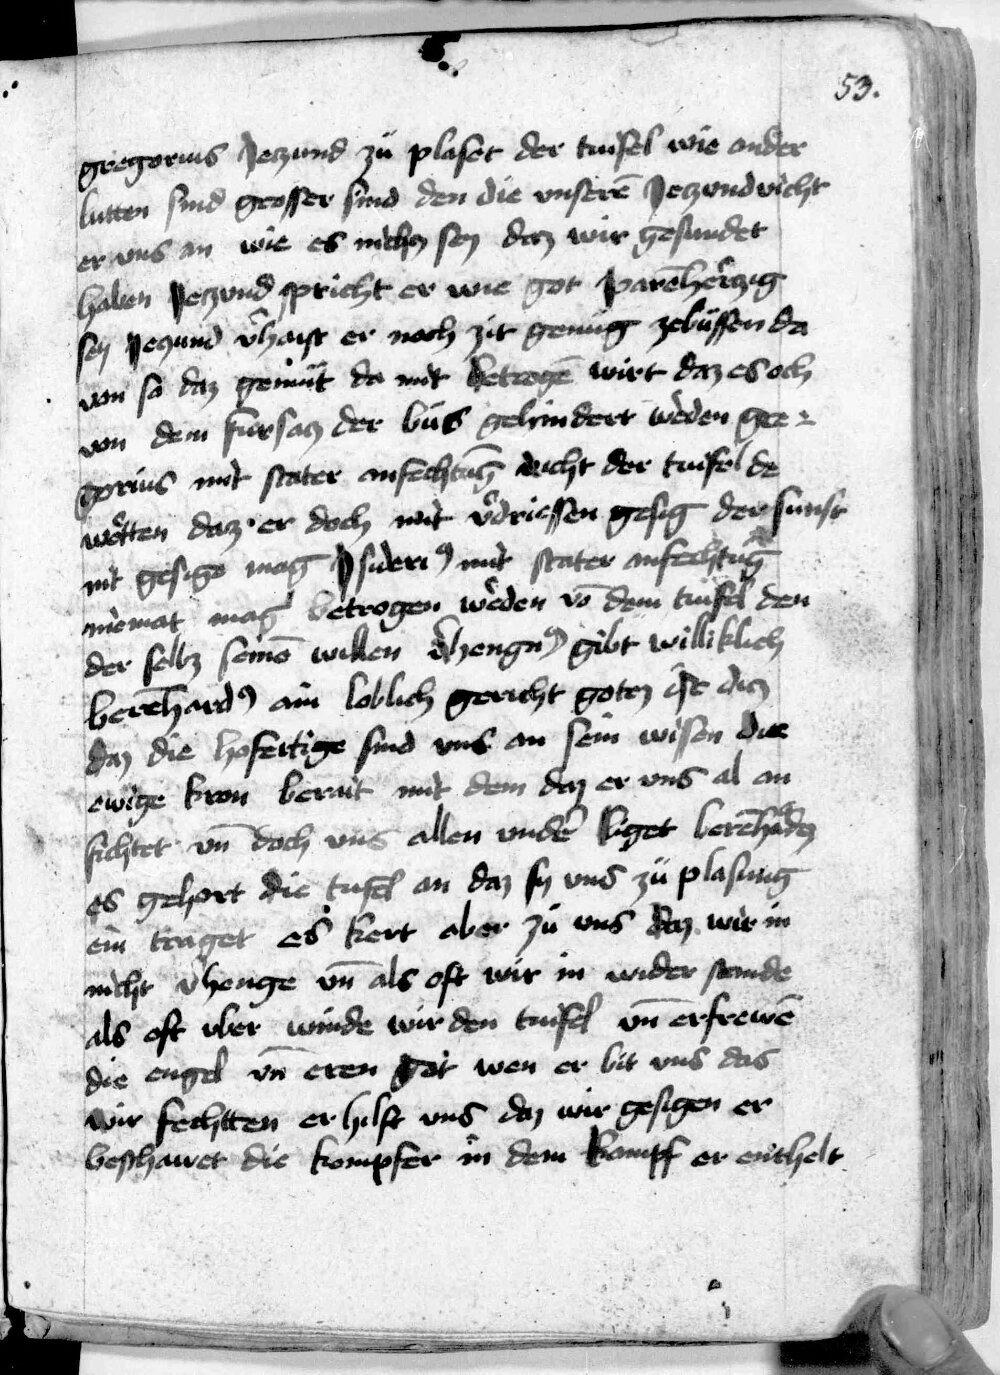 53.
gregorius Jeczund zü plaset der tiufel wie ander
lutten sind grosser sind den die unserē Jeczund vicht
er uns an wie es nichcz sey daz wir gesundet
haben Jeczund spricht er wie got parēherczig
sey Jeczund v̉haist er noch zit genüg zebüssen da
von so daz gemüt da mit betrogē wirt daz es och
von dem fursacz der büs gehindert werden gre
gorius mit stater anfechtūg vicht der tiufel de
wortten daz er doch mit v̉driessen gesig der sunst
nit gesige mag Jsiderꝰ mit stater anfechtūg
niemat mag betrogen werden vō dem tiufel den
der selb seinē willen v̉hengnꝰ gibt williklich
berēhardꝰ ain loblich gericht gotz ist daz
daz die hofertige sind uns an sein wisen die
ewige kron berait mit dem daz er uns al an
fichtet vn̄ doch uns allen under liget berēhadꝰ
es gehort die tufel an daz sy uns zü plasung
ein traget es kert aber zü uns daz wir in
nicht v̉henge vn̄ als oft wir in wider stande
als oft uber winde wir den tiufel vn̄ erfrewē
die engel vn̄ eren got wen er bit uns das
wir fechtten er hilft uns daz wir gesigen er
beschawet die kempfer in dem kampf er enthelt